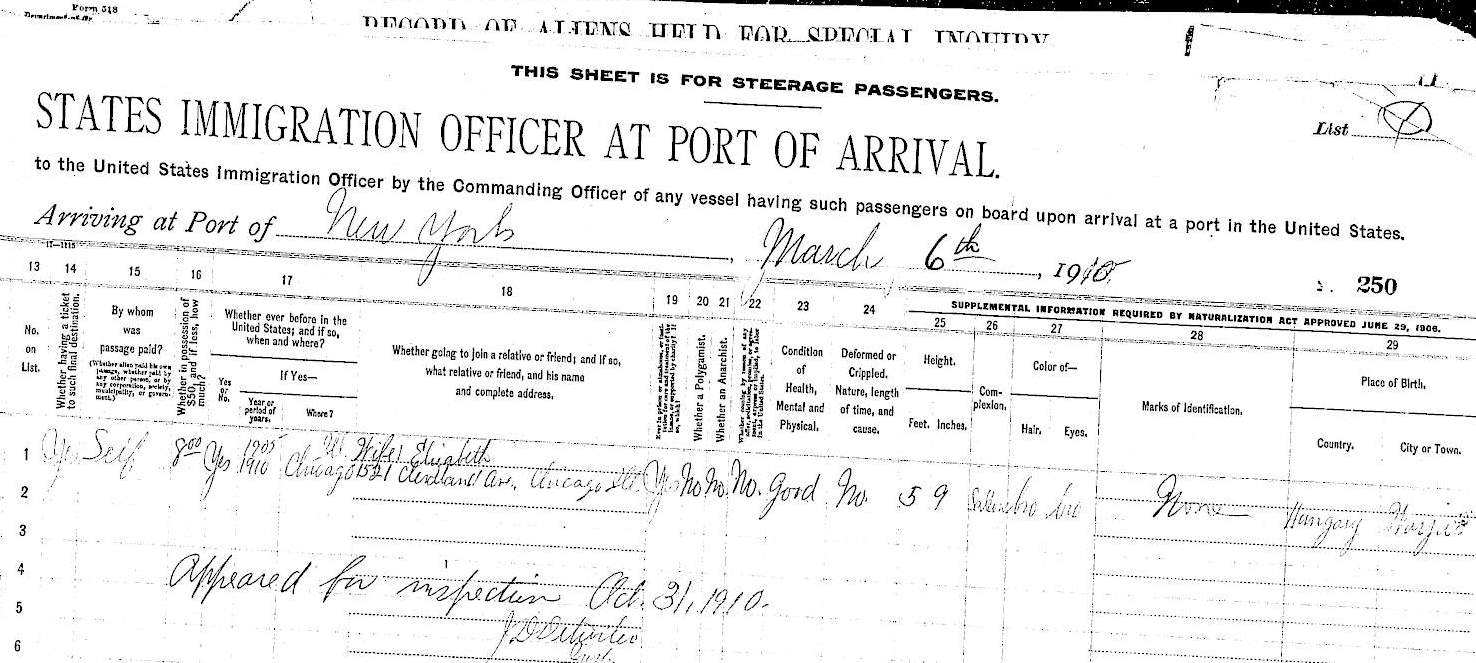 Form 518
RECORD OF ALIENS HELD FOR SPECIAL INQUIRY
THIS SHEET IS FOR STEERAGE PASSENGERS.
STATES IMMIGRATION OFFICER AT PORT OF ARRIVAL.
List
to the United States Immigration Officer by the Commanding Officer of any vessel having such passengers on board upon arrival at a port in the United States.
Arriving at Port of New York, March 6th, 1910
250
13 14 15 16 17 18 19 20 21 22 23 24 SUPPLEMENTAL INFORMATION REQUIRED BY NATURALIZATION ACT APPROVED JUNE 29, 1906.
25 26 27 28 29
No. on List.
Whether having a ticket to such final destination.
By whom was passage paid?
(Whether alien paid his own passage, whether paid by any other person, or by any corporation, society, municipality, or government.)
Whether in possession of $50, and if less, how much?
Whether ever before in the United States; and if so, when and where?
Yes or No.
If Yes—
Year or period of years.
Where?
Whether going to join a relative or friend; and if so, what relative or friend, and his name and complete address.
Whether a Polygamist.
Whether an Anarchist.
Condition of Health, Mental and Physical.
Deformed or Crippled. Nature, length of time, and cause.
Height.
Feet. Inches.
Complexion.
Color of—
Hair. Eyes.
Marks of Identification.
Place of Birth.
Country. City or Town.
1 Yes Self 8.00 Yes 1905 1910 Chicago Wife: Elizabeth
1521 Cleveland Ave. Chicago Ill. Yes No No. No. Good No. 5 9 bro bro None Hungary
2
3
4 Appeared for inspection Oct. 31, 1910.
5
6